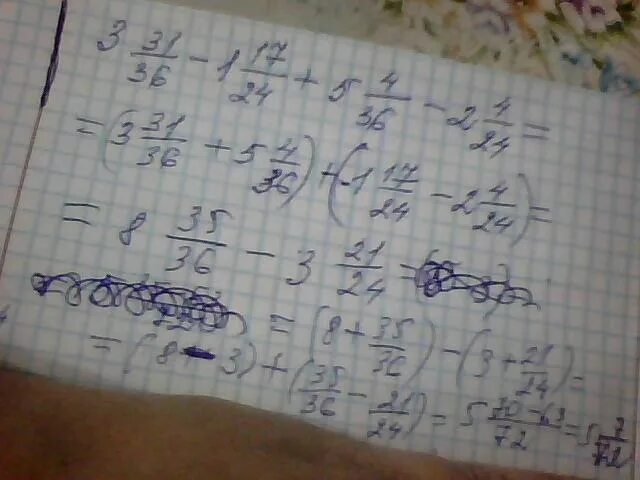 3 31/36 - 1 17/24 + 5 4/36 - 2 4/24 =
= (3 31/36 + 5 4/36) + (-1 17/24 - 2 4/24) =
= 8 35/36 - 3 21/24 =
= (8 + 35/36) - (3 + 21/24) =
= (8 - 3) + (35/36 - 21/24) = 5 70-63/72 = 5 7/72